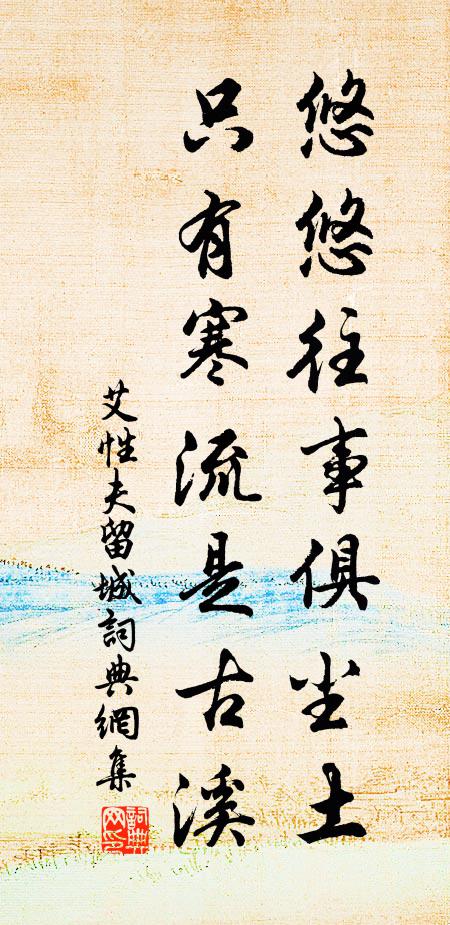 悠悠往事俱尘土
只有寒流是古溪
艾性夫留城詞典網集
詞典
网印